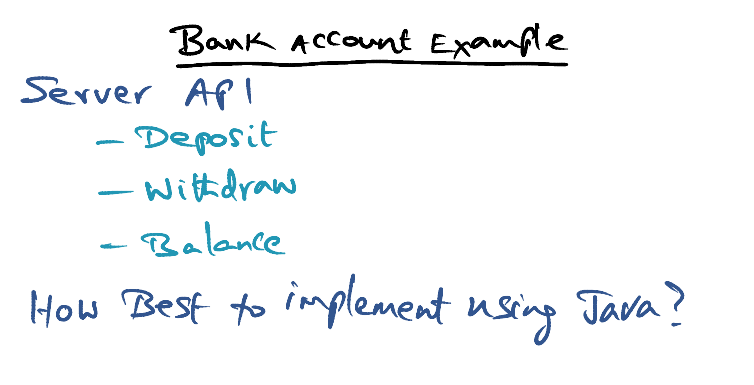 Bank Account Example
Server API
- Deposit
- Withdraw
- Balance
How Best to implement using Java?